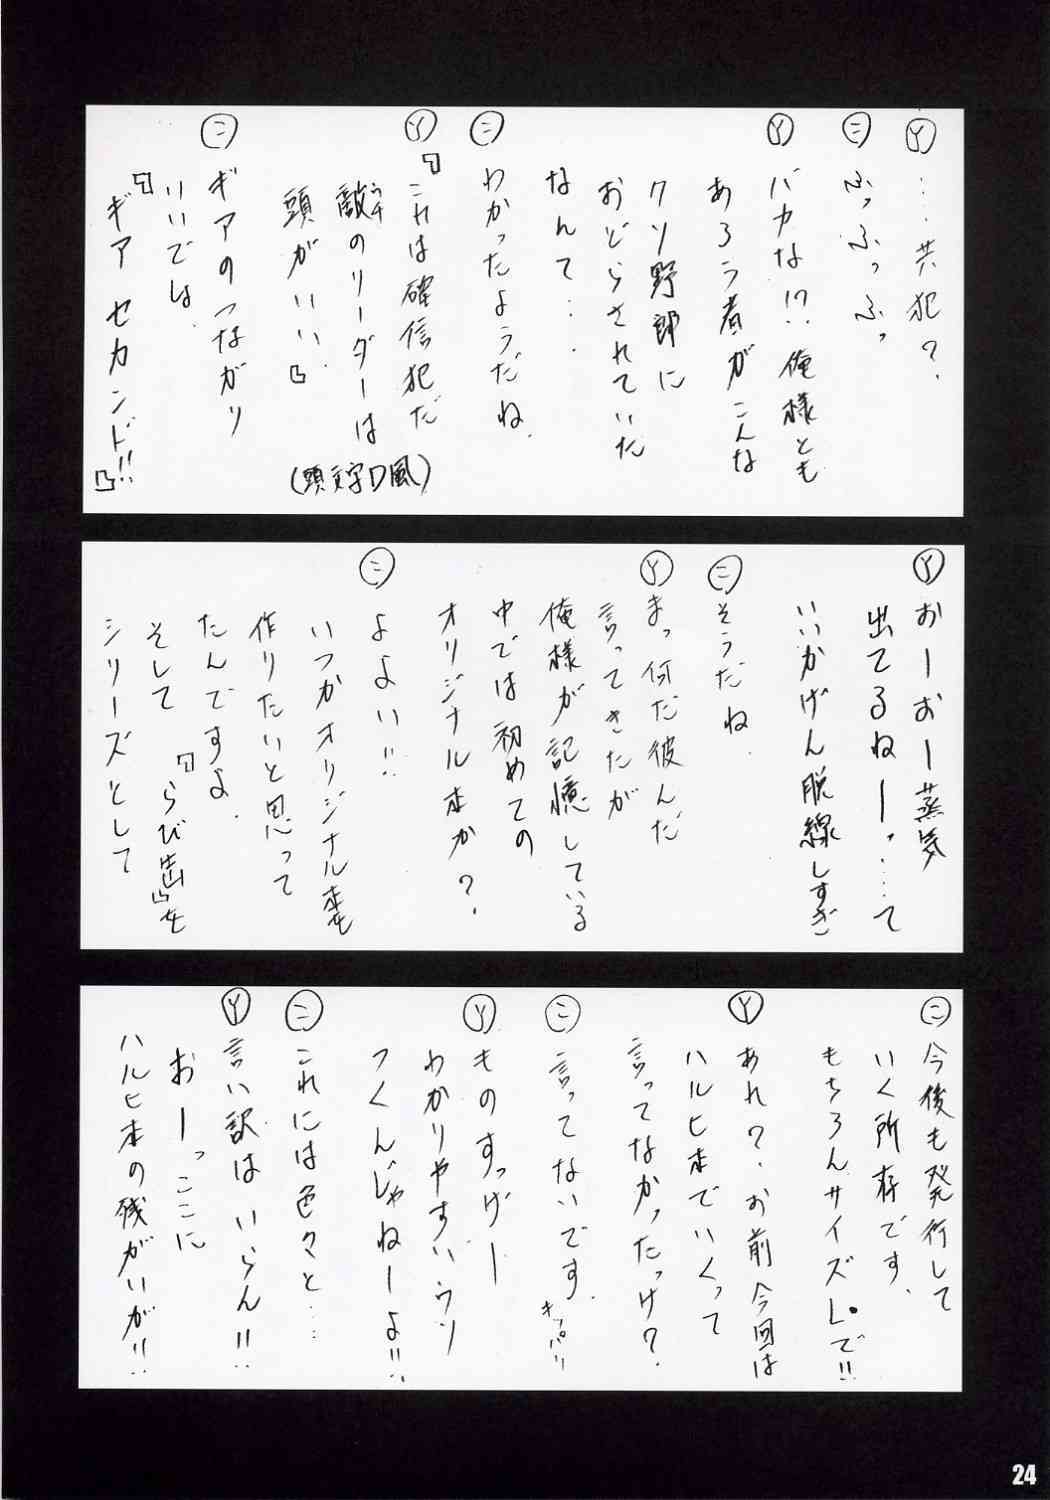 Ⓨ …共犯？
㊁ ふっふっふっ
Ⓨ バカな!? 俺様とも
あろう者がこんな
クソ野郎に
おどらされていた
なんて…．
㊁ わかったようだね．
Ⓨ『これは確信犯だ
敵のリーダーは
頭がいい．』
(頭文字D風)
㊁ ギアのつながり
いいでは．
『ギア セカンド!!』
Ⓨ おーおー蒸気
出てるねーッ……て
いいかげん脱線しすぎ
㊁ そうだね．
Ⓨ まっ何だ彼んだ
言ってきたが
俺様が記憶している
中では初めての
オリジナル本か？．
㊁ よよい!!
いつかオリジナル本も
作りたいと思って
たんですよ．
そして『らび歯』を
シリーズとして
㊁ 今後も発行して
いく所存です．
もちろんサイズLで!!
Ⓨ あれ？．お前今回は
ハルヒ本でいくって
言ってなかったっけ？．
㊁ 言ってないです．キッパリ
Ⓨ ものすっげー
わかりやすいウソ
つくんじゃねーよ!!
㊁ これには色々と…．
Ⓨ 言い訳はいらん!!
おーっここに
ハルヒ本の残がいが!!
24